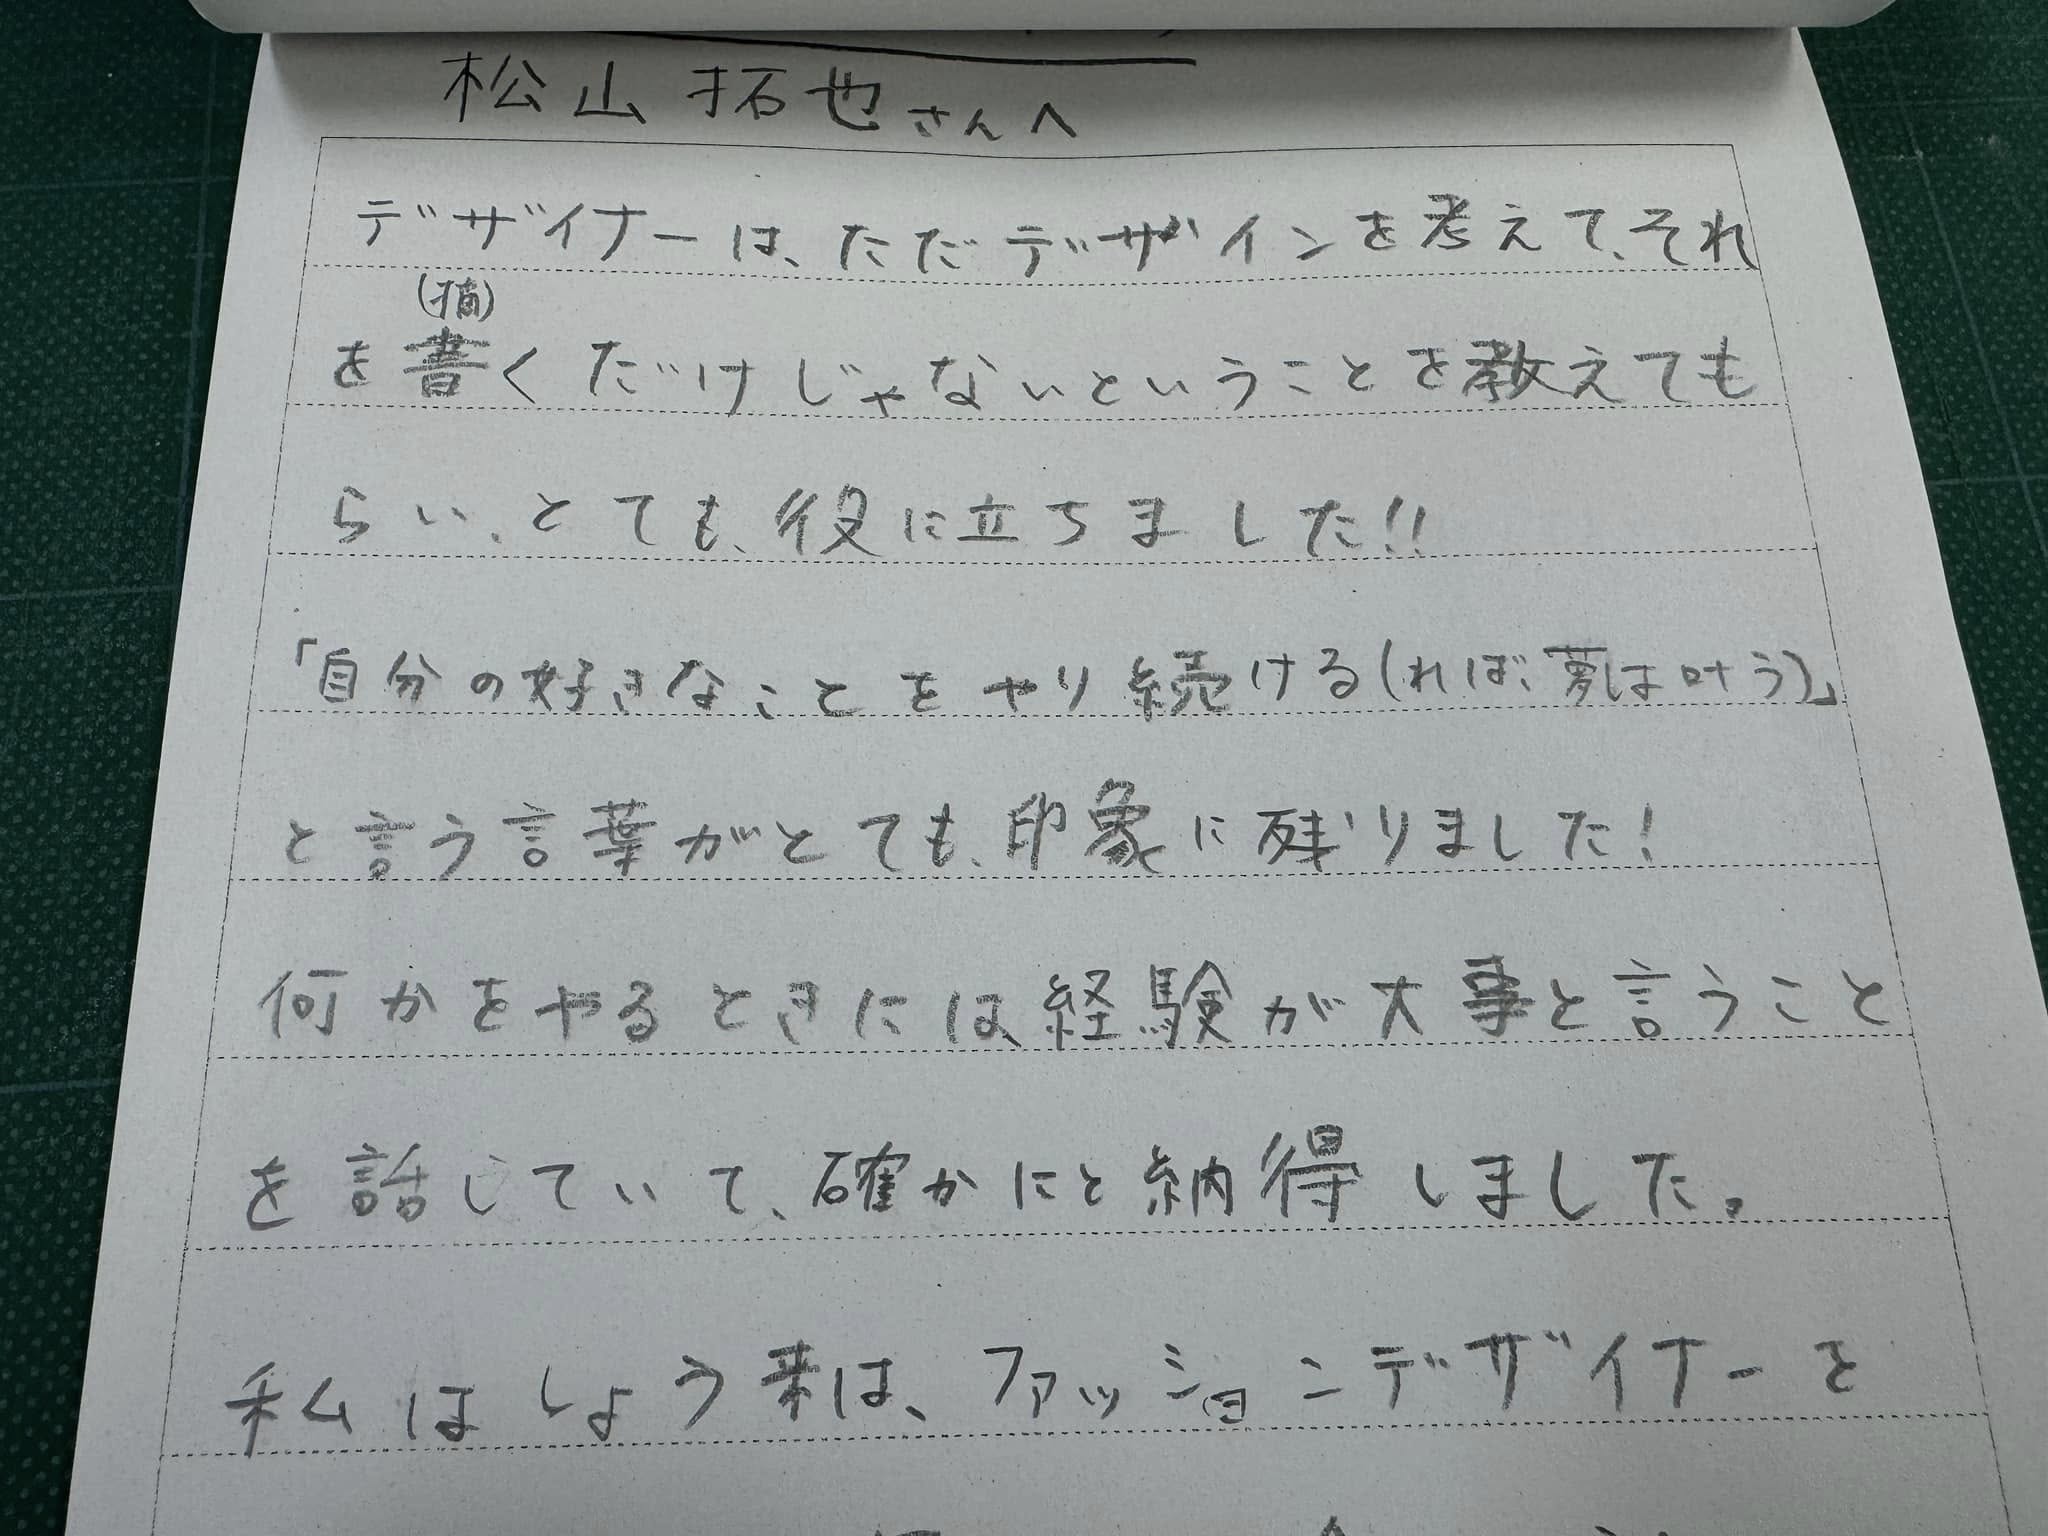 松山 拓也さんへ
デザイナーは、ただデザインを考えて、それ
(描)
を書くだけじゃないということを教えても
らい、とても、役に立ちました!!
「自分の好きなことをやり続ける(れば、夢は叶う)」
と言う言葉がとても、印象に残りました!
何かをやるときには経験が大事と言うこと
を話していて、確かにと納得しました。
私はしょう来は、ファッションデザイナーを